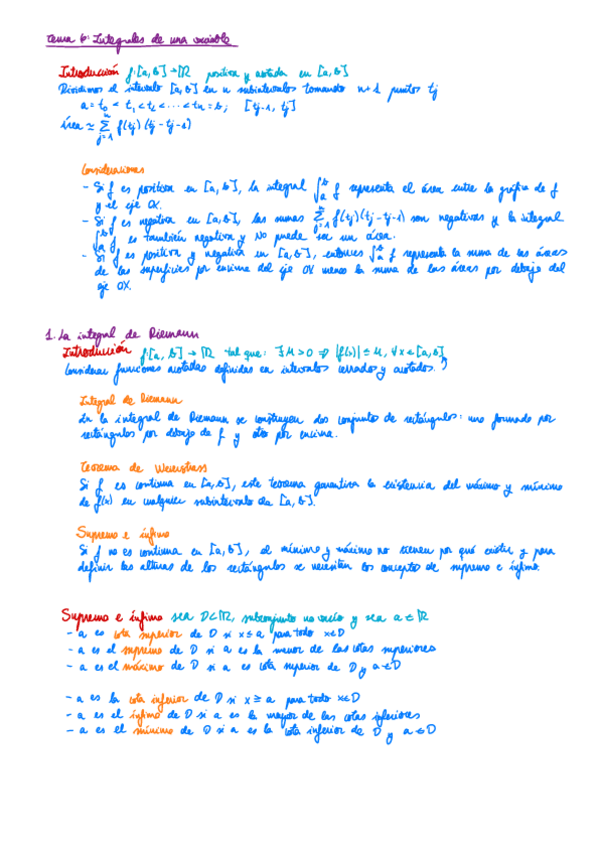 Tema 6: Integrales de una variable
Introducción f: [a, b] → ℝ positiva y acotada en [a, b]
Dividimos el intervalo [a, b] en n subintervalos tomando n+1 puntos tj
a = t₀ < t₁ < t₂ < ... < tn = b; [tj-1, tj]
área ≃ Σ_{j=1}^{n} f(tj)(tj - tj-1)
Consideraciones
- Si f es positiva en [a, b], la integral ∫_a^b f representa el área entre la gráfica de f
y el eje OX.
- Si f es negativa en [a, b], las sumas Σ_{j=1}^{n} f(tj)(tj - tj-1) son negativas y la integral
∫_a^b f es también negativa y No puede ser un área.
- Si f es positiva y negativa en [a, b], entonces ∫_a^b f representa la suma de las áreas
de las superficies por encima del eje OX menos la suma de las áreas por debajo del
eje OX.
1. La integral de Riemann
Introducción f: [a, b] → ℝ tal que: ∃ M > 0 ⇒ |f(x)| ≤ M, ∀ x ∈ [a, b]
Considerar funciones acotadas definidas en intervalos cerrados y acotados.
Integral de Riemann
En la integral de Riemann se construyen dos conjuntos de rectángulos: uno formado por
rectángulos por debajo de f y otro por encima.
Teorema de Weierstrass
Si f es continua en [a, b], este teorema garantiza la existencia del máximo y mínimo
de f(x) en cualquier subintervalo de [a, b].
Supremo e ínfimo
Si f no es continua en [a, b], el mínimo y máximo no tienen por qué existir y para
definir las alturas de los rectángulos se necesitan los conceptos de supremo e ínfimo.
Supremo e ínfimo sea D⊂ℝ, subconjunto no vacío y sea a ∈ ℝ
- a es cota superior de D si x ≤ a para todo x∈D
- a es el supremo de D si a es la menor de las cotas superiores
- a es el máximo de D si a es cota superior de D y a∈D
- a es la cota inferior de D si x ≥ a para todo x∈D
- a es el ínfimo de D si a es la mayor de las cotas inferiores
- a es el mínimo de D si a es la cota inferior de D y a ∈ D